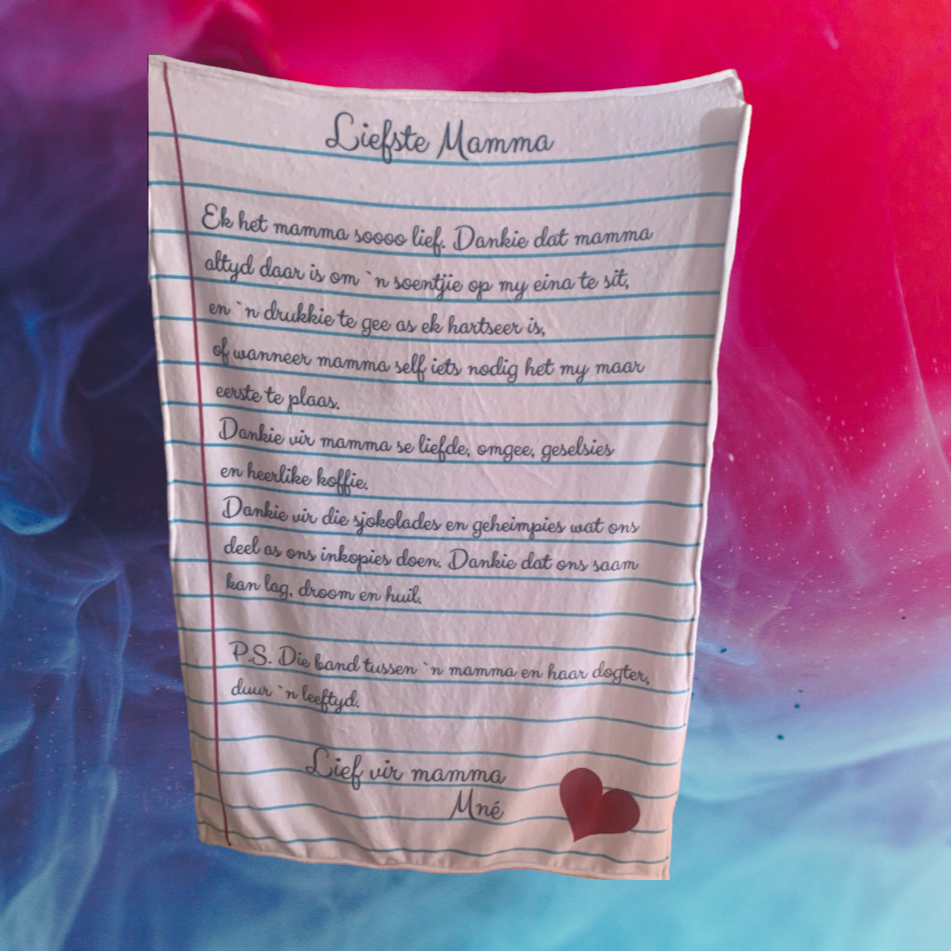 Liefste Mamma
Ek het mamma soooo lief. Dankie dat mamma
altyd daar is om `n soentjie op my eina te sit,
en `n drukkie te gee as ek hartseer is,
of wanneer mamma self iets nodig het my maar
eerste te plaas.
Dankie vir mamma se liefde, omgee, geselsies
en heerlike koffie.
Dankie vir die sjokolades en geheimpies wat ons
deel as ons inkopies doen. Dankie dat ons saam
kan lag, droom en huil.
P.S. Die band tussen `n mamma en haar dogter,
duur `n leeftyd.
Lief vir mamma
Mné